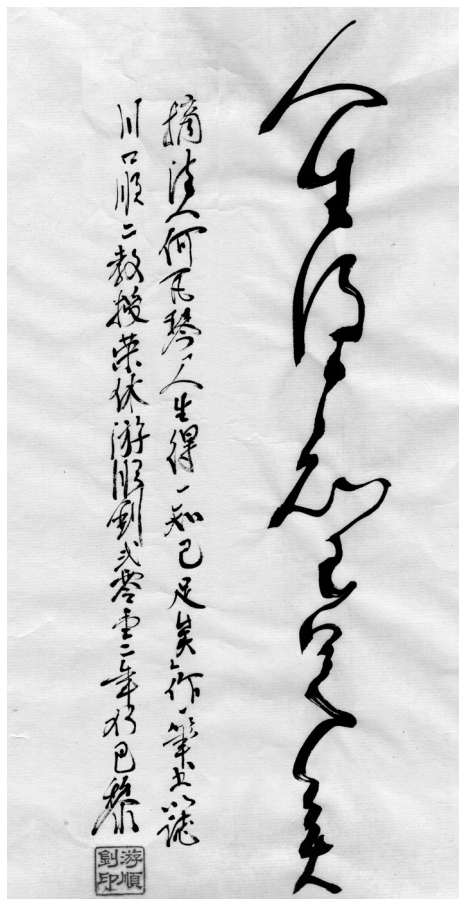 人生得一知己足矣
摘清人何瓦琴人生得一知己足矣作一筆书以誌
川口順二教授荣休游順釗弍零壹二年於巴黎
游順
釗印